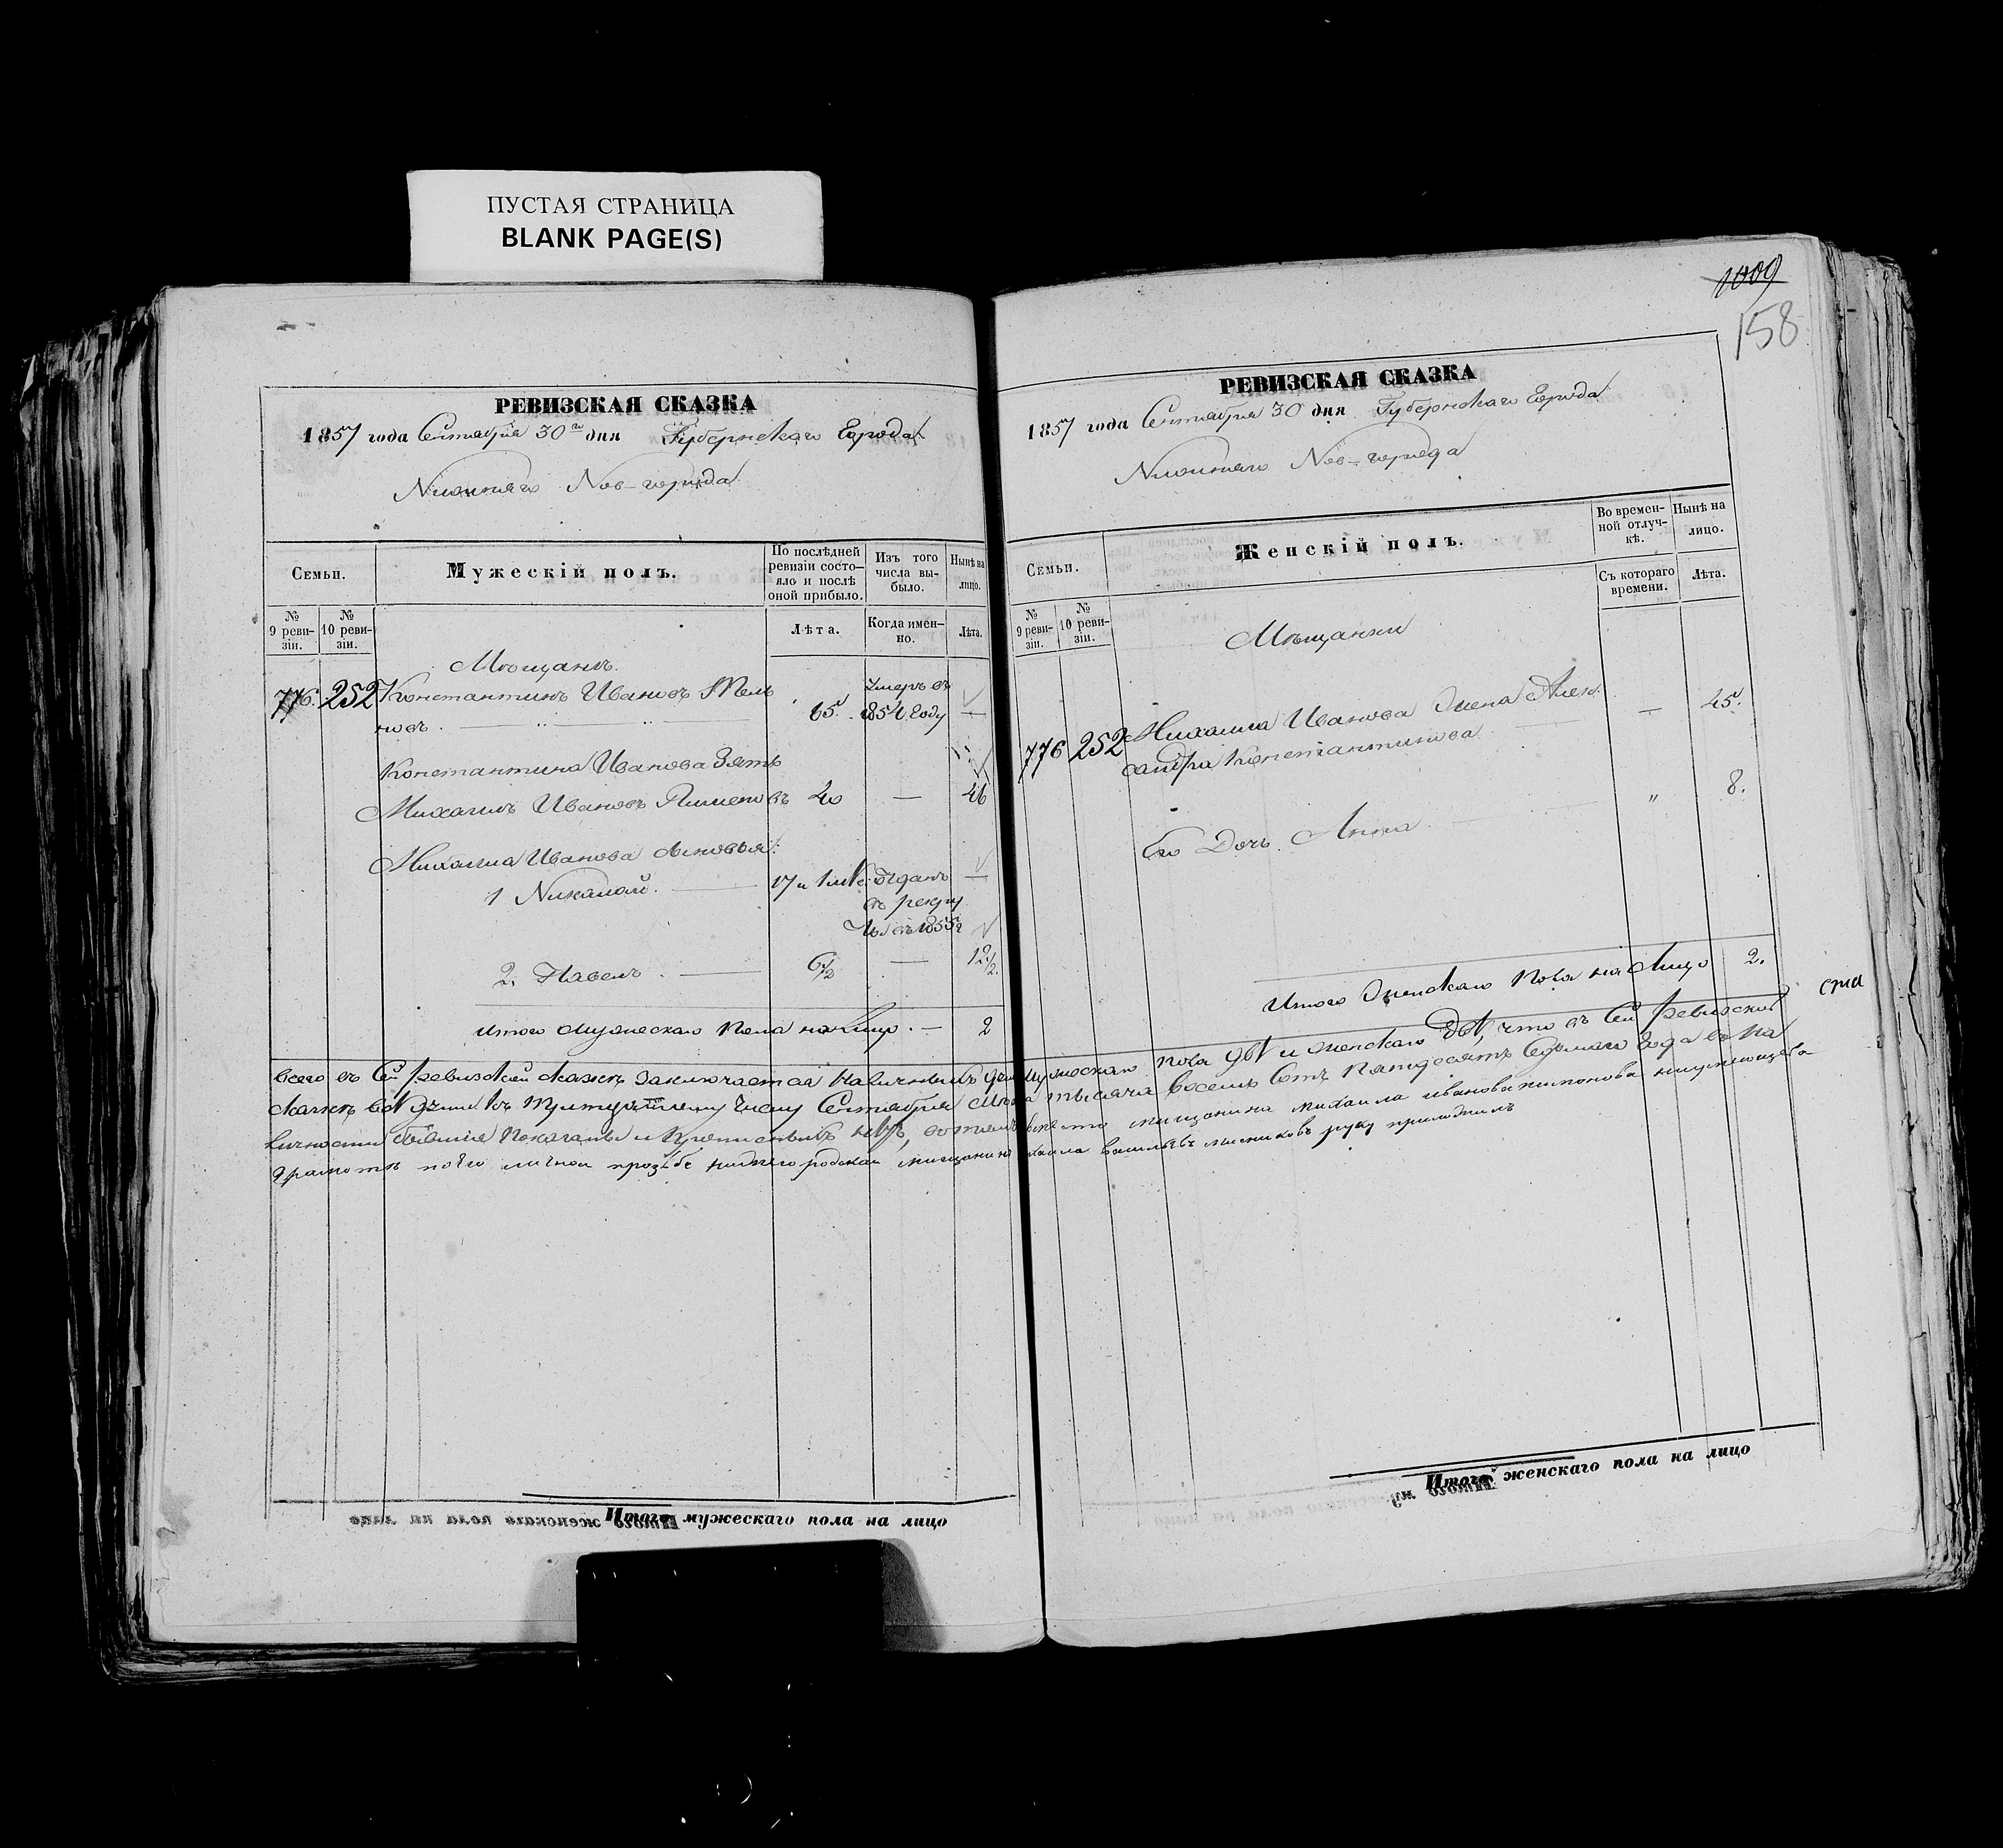 ПУСТАЯ СТРАНИЦА
BLANK PAGE(S)
РЕВИЗСКАЯ СКАЗКА
1857 года Сентября 30го дня Губернскаго Города
Нижняго Нов-города
Семьи.
Мужескій полъ.
По послѣдней ревизіи состояло и послѣ оной прибыло.
Изъ того числа выбыло.
Нынѣ на лицо.
№ 9 ревизіи.
№ 10 ревизіи.
Лѣта.
Когда именно.
Лѣта.
Мѣщанъ.
776. 252 Константинъ Ивановъ
новъ. 65. Умеръ въ 1854 году —
Константина Иванова Зять
Михаилъ Ивановъ Пименовъ 40 — 46
Михаила Иванова сыновья:
1 Николай. 17 и Отданъ —
въ рекру
ты въ 1855 г
2. Павелъ. 6½ — 12½.
Итого мужескаго пола на лицо. — 2
Итого мужескаго пола на лицо
1009
158
РЕВИЗСКАЯ СКАЗКА
1857 года Сентября 30 дня Губернскаго Города
Нижняго Нов-города
Семьи.
Женскій полъ.
Во временной отлучкѣ.
Нынѣ на лицо.
№ 9 ревизіи.
№ 10 ревизіи.
Съ котораго времени.
Лѣта.
Мѣщанки
776 252 Михаила Иванова жена Алек
сандра Константинова — 45.
Его Дочь Анна " 8.
Итого женскаго пола на лицо 2.
всего въ сей ревизской сказкѣ заключается наличныхъ душъ мужескаго пола двѣ и женскаго двѣ, что въ сей ревизской
сказкѣ всѣ души къ тритцатому числу Сентября тысяча восемь сотъ пятдесятъ седьмаго года въ на
личности бывшія показаны и прописныхъ нѣтъ, въ томъ вмѣсто мищанина михаила иванова пименова неумеющева
грамотѣ по его личной прозьбѣ нижегородскай мищанинъ васильевъ руку приложилъ
Итого женскаго пола на лицо